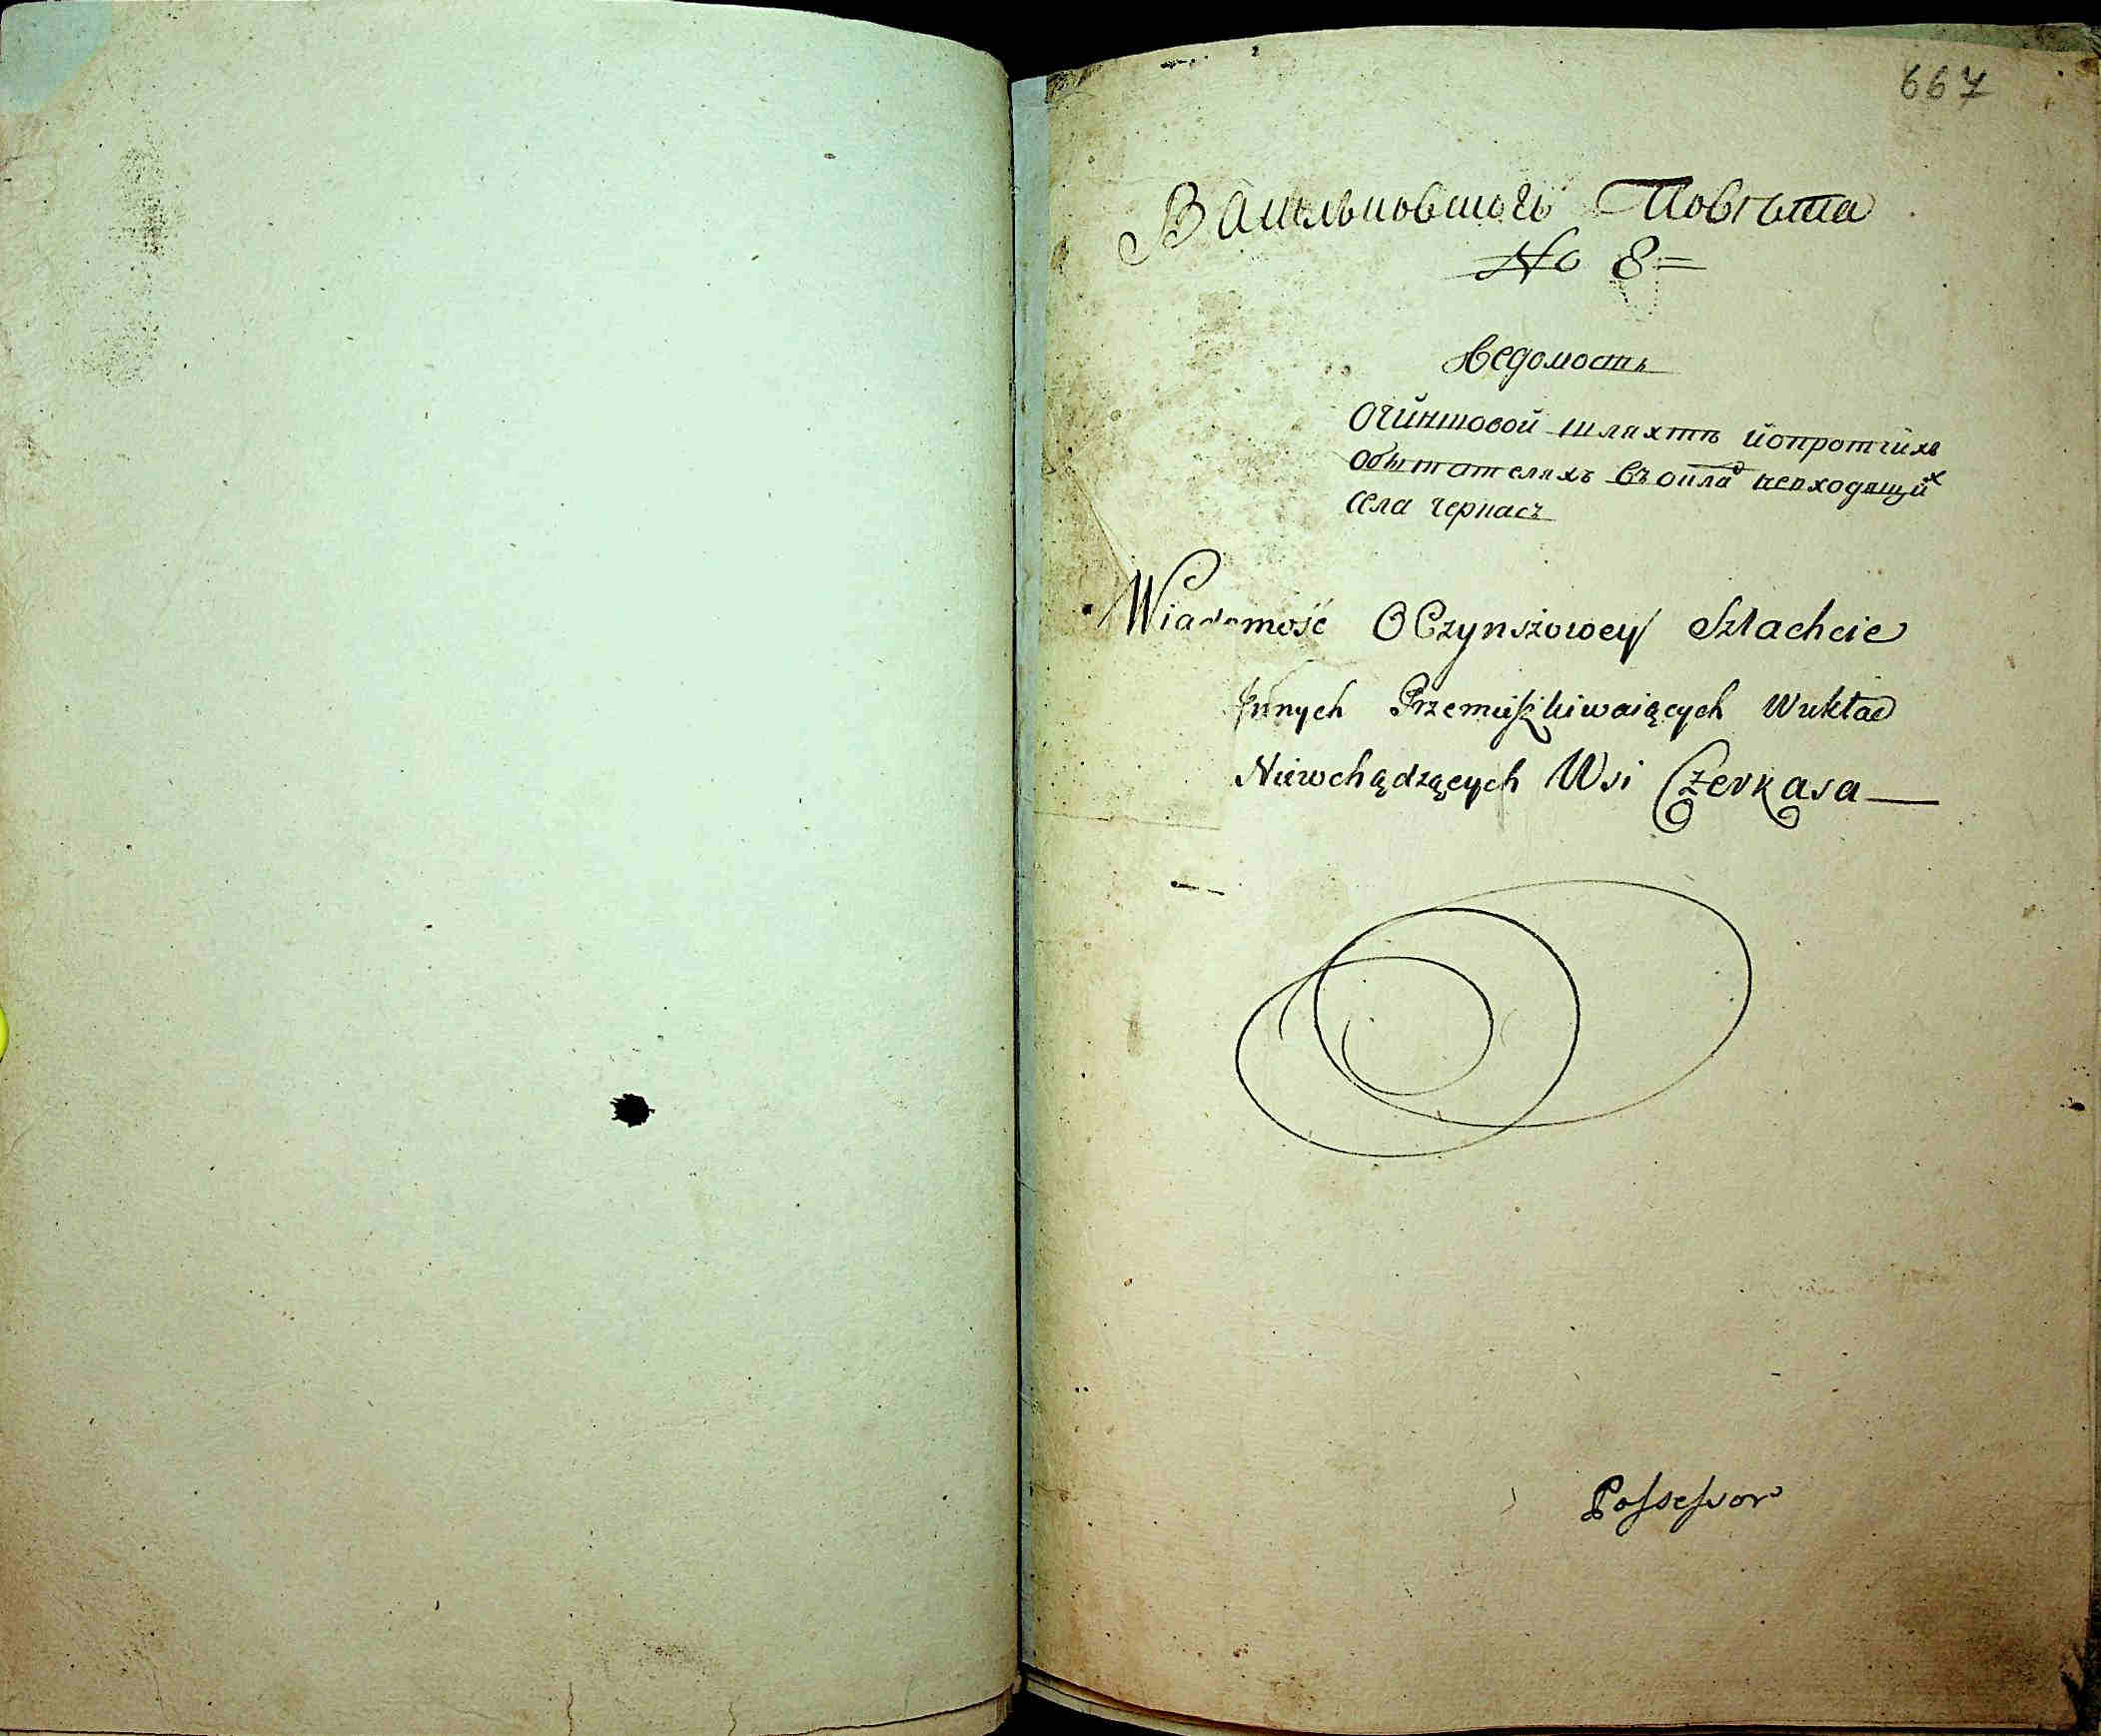 667
Васильковского Повѣта
No 8=
Ведомость
Очиншовой шляхтѣ йопротчихъ
Обытателяхъ въокла^д невходящи^х
Села черкасъ
Wiadomość O Czynszowey Szlachcie
Jnnych Przemiszkiwaiących Wukład
Niewchądzących Wsi Czerkasa—
Possessor